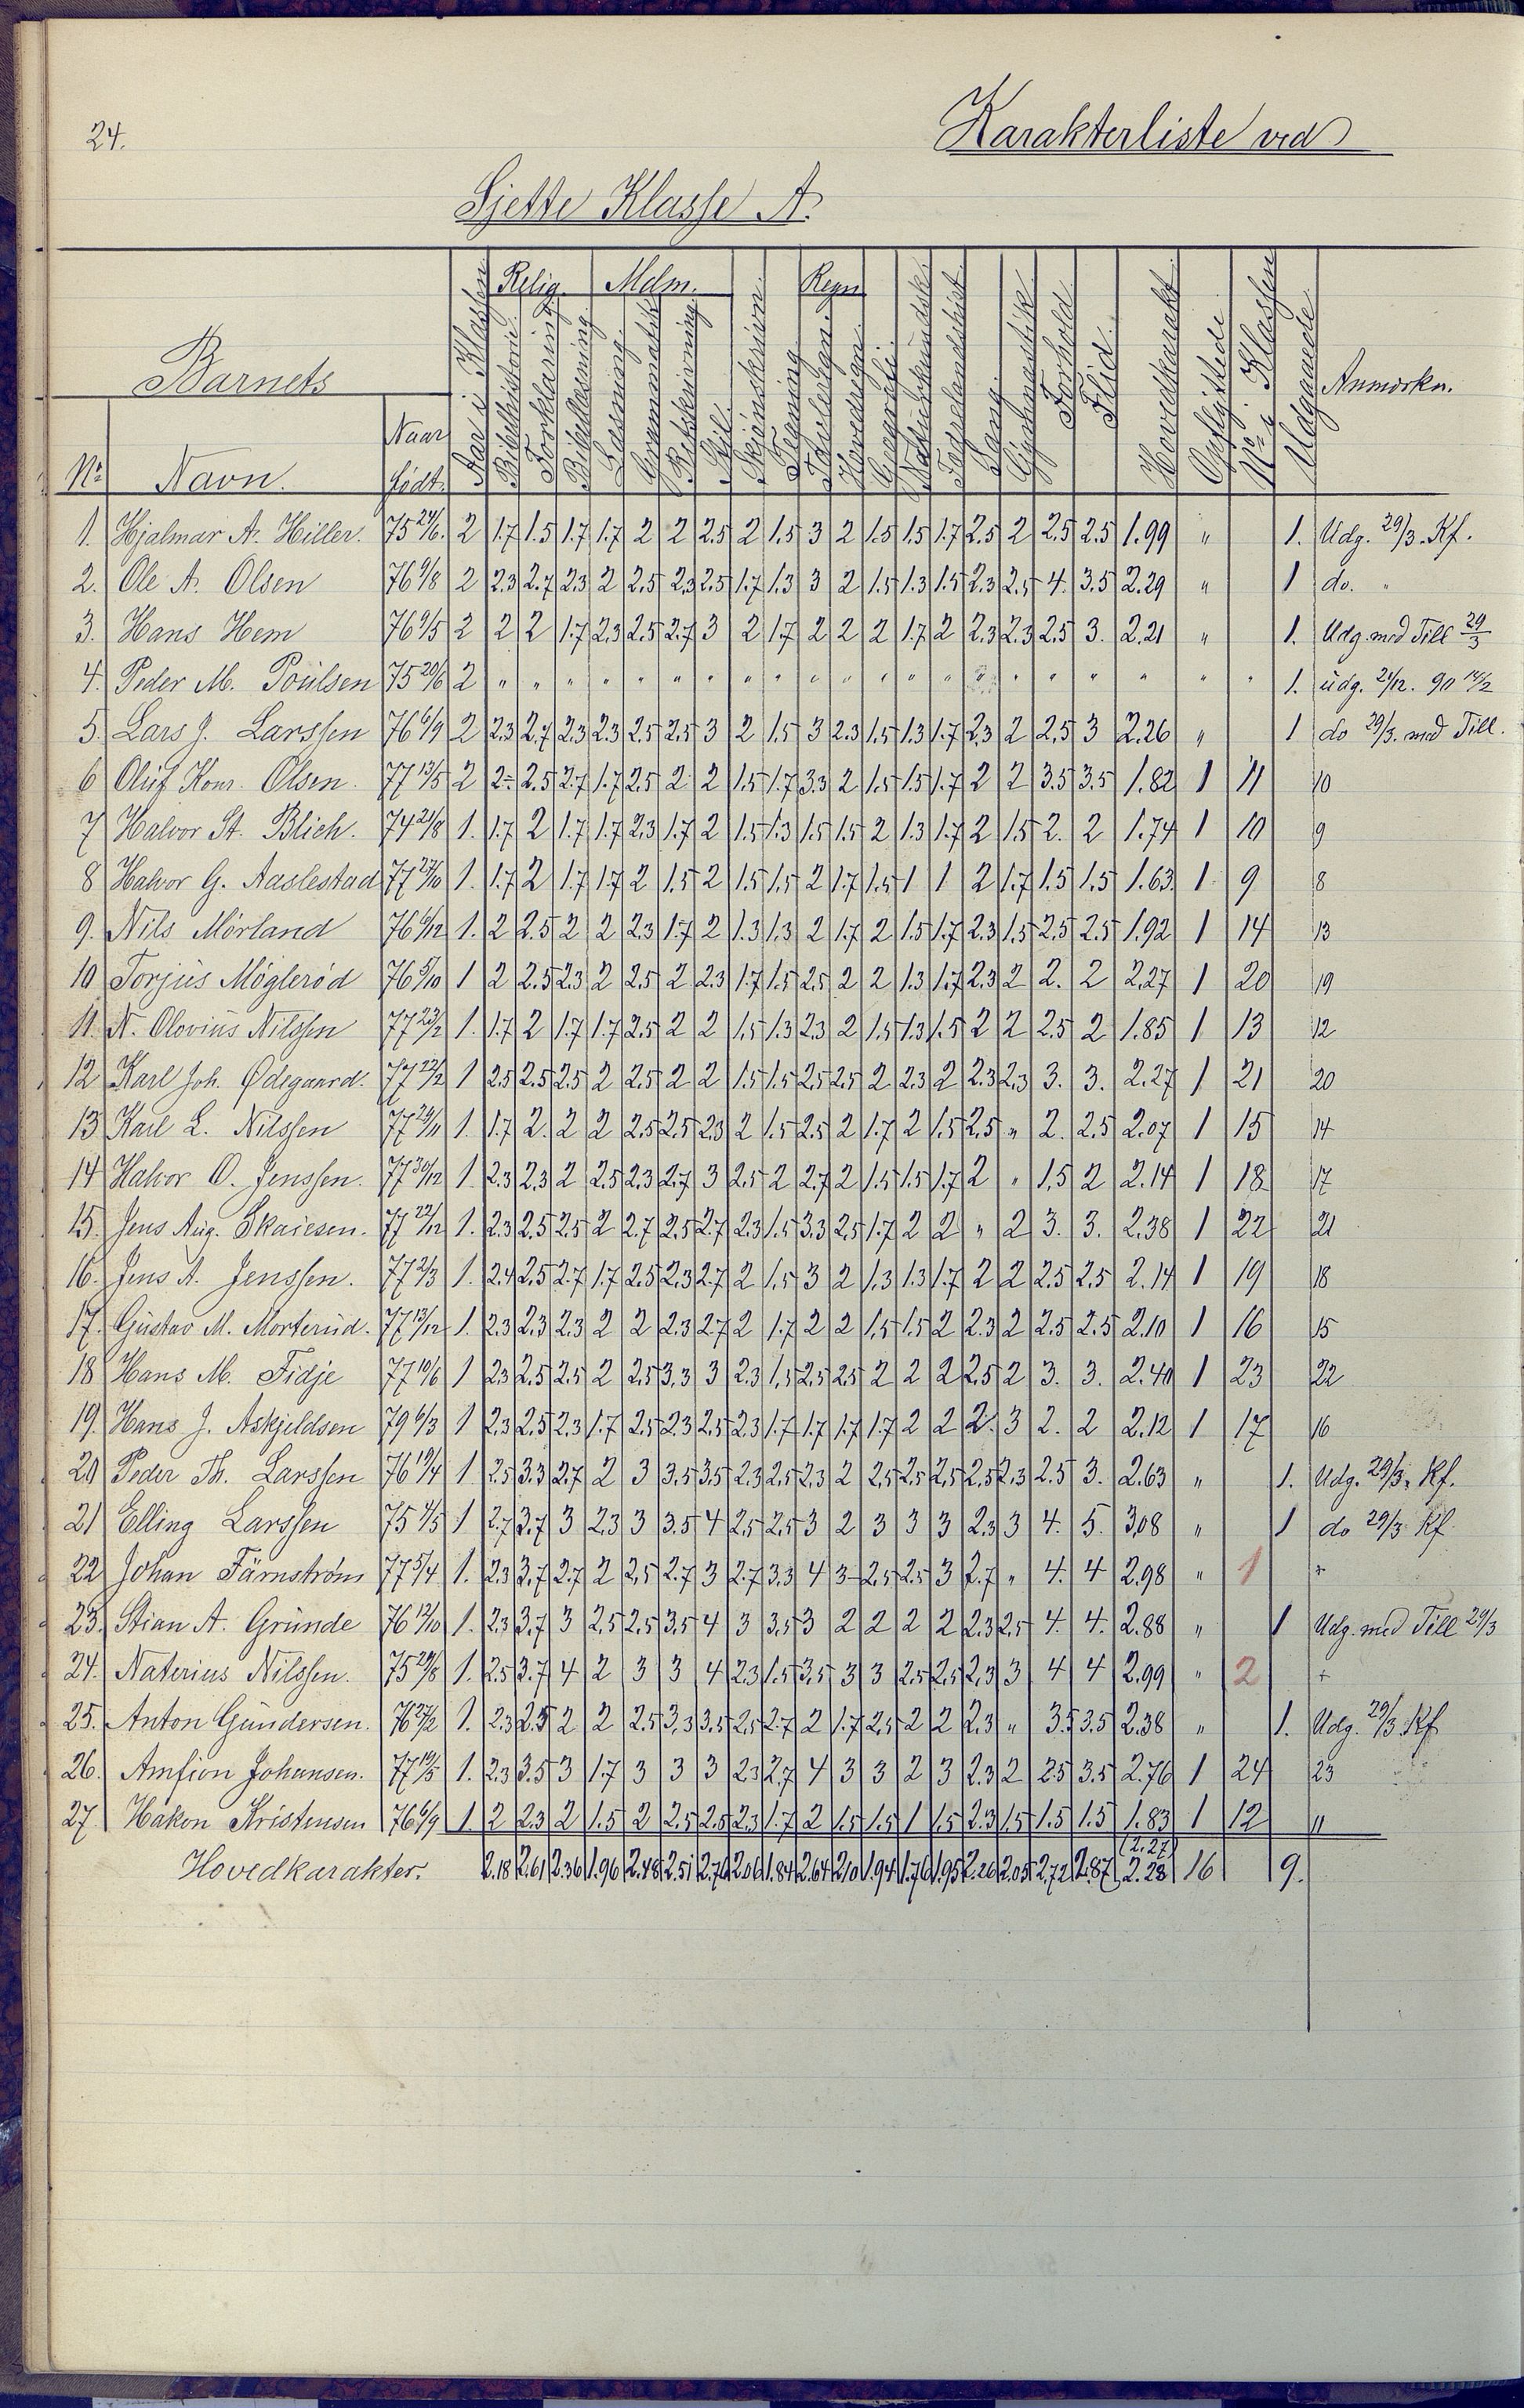 24.
Karakterliste ved
Sjette Klasse A.
Barnets
Relig. Mdm. Regn
No. Navn. Naar født. Aar i Klassen Bibelhistorie. Forklaring. Bibellæsning Læsning. Grammatik Retskrivning Stil. Skjönskrivn. Tegning. Tavleregn. Hovedregn. Geografi. Naturkundsk. Fædrelandshist. Sang. Gymnastik Forhold Flid. Hovedkarakt. Opflyttede No. i Klassen Udgaaede. Anmærkn.
1. Hjalmar A. Hiller. 75 24/6. 2 1.7 1.5 1.7 1.7 2 2 2.5 2 1.5 3 2 1.5 1.5 1.7 2.5 2 2.5 2.5 1.99 " 1. Udg. 29/3. Kf.
2. Ole A. Olsen 76 9/8 2 2.3 2.7 2.3 2 2.5 2.3 2.5 1.7 1.3 3 2 1.5 1.3 1.5 2.3 2.5 4. 3.5 2.29 " 1 do. "
3. Hans Hem 76 9/5 2 2 2 1.7 2.3 2.5 2.7 3 2 1.7 2 2 2 1.7 2 2.3 2.3 2.5 3. 2.21 " 1. Udg. med Till 29/3
4. Peder M. Poulsen 75 20/6 2 " " " " " " " " " " " " " " " " " " " " " 1. udg. 2/12. 90 14/2
5. Lars J. Larssen 76 6/9 2 2.3 2.7 2.3 2.3 2.5 2.5 3 2 1.5 3 2.3 1.5 1.3 1.7 2.3 2 2.5 3 2.26 " 1 do 29/3. med Till.
6 Oluf Konr. Olsen. 77 13/5 2 2- 2.5 2.7 1.7 2.5 2 2 1.5 1.7 3.3 2 1.5 1.5 1.7 2 2 3.5 3.5 1.82 1 11 10
7 Halvor St. Blich. 74 21/8 1. 1.7 2 1.7 1.7 2.3 1.7 2 1.5 1.3 1.5 1.5 2 1.3 1.7 2 1.5 2. 2 1.74 1 10 9
8 Halvor G. Aaslestad 77 27/10 1. 1.7 2 1.7 1.7 2 1.5 2 1.5 1.5 2 1.7 1.5 1 1 2 1.7 1.5 1.5 1.63. 1 9 8
9. Nils Mörland 76 6/12 1. 2 2.5 2 2 2.3 1.7 2 1.3 1.3 2 1.7 2 1.5 1.7 2.3 1.5 2.5 2.5 1.92 1 14 13
10 Torjus Möglerød 76 5/10 1 2 2.5 2.3 2 2.5 2 2.3 1.7 1.5 2.5 2 2 1.3 1.7 2.3 2 2. 2 2.27 1 20 19
11. N. Olovius Nilssen 77 23/2 1. 1.7 2 1.7 1.7 2.5 2 2 1.5 1.3 2.3 2 1.5 1.3 1.5 2 2 2.5 2 1.85 1 13 12
12 Karl Joh. Ødegaard. 77 22/2 1 2.5 2.5 2.5 2 2.5 2 2 1.5 1.5 2.5 2.5 2 2.3 2 2.3 2.3 3. 3. 2.27 1 21 20
13 Karl L. Nilssen 77 29/11 1. 1.7 2. 2 2 2.5 2.5 2.3 2 1.5 2.5 2 1.7 2 1.5 2.5 " 2. 2.5 2.07 1 15 14
14 Halvor O. Jenssen. 77 30/12 1. 2.3 2.3 2 2.5 2.3 2.7 3 2.5 2 2.7 2 1.5 1.5 1.7 2 " 1.5 2 2.14 1 18 17
15. Jens Aug. Skaiesen. 77 22/12 1. 2.3 2.5 2.5 2 2.7 2.5 2.7 2.3 1.5 3.3 2.5 1.7 2 2 " 2 3. 3. 2.38 1 22 21
16. Jens A. Jenssen. 77 2/3 1. 2.4 2.5 2.7 1.7 2.5 2.3 2.7 2 1.5 3 2 1.3 1.3 1.7 2 2 2.5 2.5 2.14 1 19 18
17. Gustav M. Morterud. 77 13/12 1. 2.3 2.3 2.3 2 2 2.3 2.7 2 1.7 2 2 1.5 1.5 2 2.3 2 2.5 2.5 2.10 1 16 15
18 Hans M. Fidje 77 10/6 1 2.3 2.5 2.5 2 2.5 3.3 3 2.3 1.5 2.5 2.5 2 2 2 2.5 2 3. 3. 2.40 1 23 22
19. Hans J. Askjeldsen 79 6/3 1 2.3 2.5 2.3 1.7 2.5 2.3 2.5 2.3 1.7 1.7 1.7 1.7 2 2 2. 3 2. 2 2.12 1 17 16
20 Peder Th. Larssen 76 19/4 1 2.5 3.3 2.7 2 3 3.5 3.5 2.3 2.5 2.3 2 2.5 2.5 2.5 2.5 2.3 2.5 3. 2.63 " 1. Udg. 29/3. Kf.
21 Elling Larssen 75 4/5 1 2.7 3.7 3 2.3 3 3.5 4 2.5 2.5 3 2 3 3 3 2.3 3 4. 5. 3,08 " 1 do 29/3 Kf.
22 Johan Färnström 77 5/4 1. 2.3 3.7 2.7 2 2.5 2.7 3 2.7 3.3 4 3- 2.5 2.5 3 2.7 " 4. 4 2.98 " 1 +
23. Stian A. Gründe 76 13/10 1. 2.3 3.7 3 2.5 2.5 3.5 4 3 3.5 3 2 2 2 2 2.3 2.5 4. 4. 2.88 " 1 Udg. med Till 29/3
24. Naterius Nilssen. 75 29/8 1. 2.5 3.7 4 2 3 3 4 2.3 1.5 3.5 3 3 2.5 2.5 2.3 3 4 4 2.99 " 2 +
25. Anton Gundersen. 76 27/2 1. 2.3 2.5 2 2 2.5 3.3 3.5 2.5 2.7 2 1.7 2.5 2 2 2.3 " 3.5 3.5 2.38 " 1. Udg. 29/3 Kf
26. Amfion Johansen. 77 19/5 1. 2.3 3.5 3 1.7 3 3 3 2.3 2.7 4 3 3 2 3 2.3 2 2.5 3.5 2.76 1 24 23
27. Hakon Kristensen 76 6/9 1. 2 2.3 2 1.5 2 2.5 2.5 2.3 1.7 2 1.5 1.5 1 1.5 2.3 1.5 1.5 1.5 1.83 1 12 11
(2.27)
Hovedkarakter. 2.18 2.61 2.36 1.96 2.48 2.51 2.70 2.06 1.84 2.64 2.10 1.94 1.76 1.95 2.26 2.05 2.72 2.87 2.28 16 9.